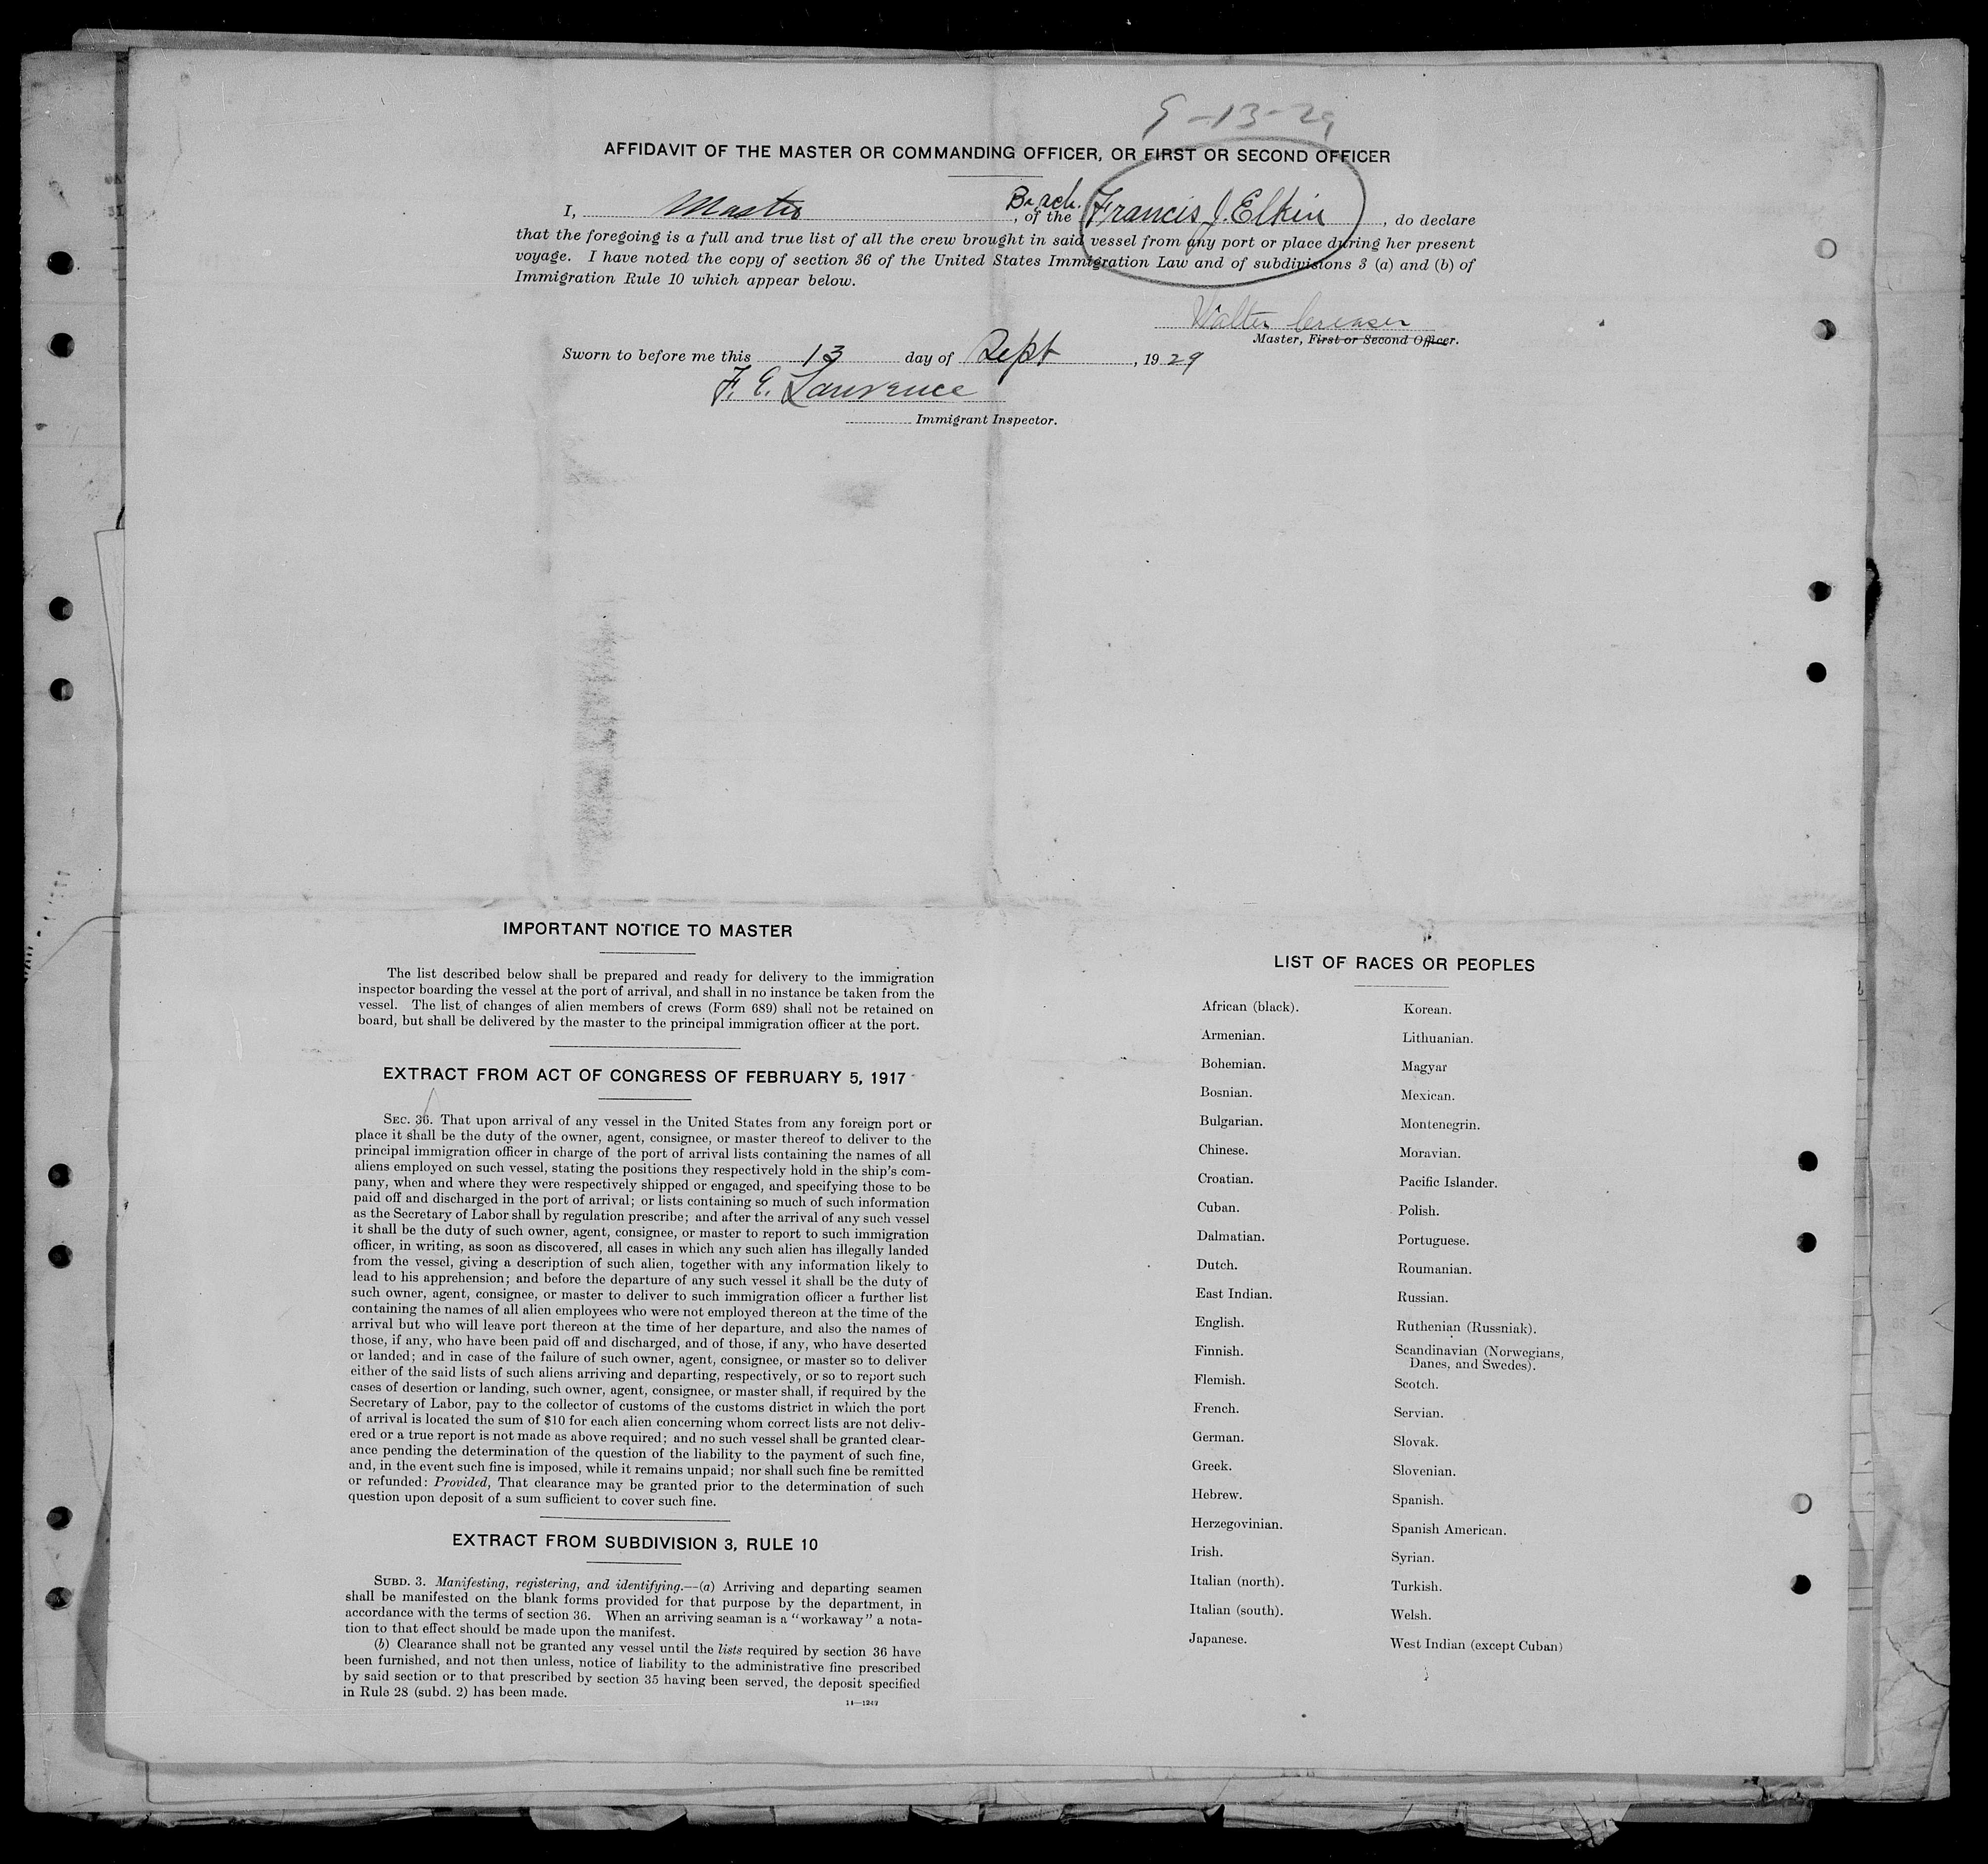 9-13-29
AFFIDAVIT OF THE MASTER OR COMMANDING OFFICER, OR FIRST OR SECOND OFFICER
I, Master, of the Br. sch. Francis J. Elkin, do declare
that the foregoing is a full and true list of all the crew brought in said vessel from any port or place during her present
voyage. I have noted the copy of section 36 of the United States Immigration Law and of subdivisions 3 (a) and (b) of
Immigration Rule 10 which appear below.
Walter
Master, First or Second Officer.
Sworn to before me this 13 day of Sept, 1929
F. E. Lawrence
Immigrant Inspector.
IMPORTANT NOTICE TO MASTER
The list described below shall be prepared and ready for delivery to the immigration
inspector boarding the vessel at the port of arrival, and shall in no instance be taken from the
vessel. The list of changes of alien members of crews (Form 689) shall not be retained on
board, but shall be delivered by the master to the principal immigration officer at the port.
EXTRACT FROM ACT OF CONGRESS OF FEBRUARY 5, 1917
SEC. 36. That upon arrival of any vessel in the United States from any foreign port or
place it shall be the duty of the owner, agent, consignee, or master thereof to deliver to the
principal immigration officer in charge of the port of arrival lists containing the names of all
aliens employed on such vessel, stating the positions they respectively hold in the ship's com-
pany, when and where they were respectively shipped or engaged, and specifying those to be
paid off and discharged in the port of arrival; or lists containing so much of such information
as the Secretary of Labor shall by regulation prescribe; and after the arrival of any such vessel
it shall be the duty of such owner, agent, consignee, or master to report to such immigration
officer, in writing, as soon as discovered, all cases in which any such alien has illegally landed
from the vessel, giving a description of such alien, together with any information likely to
lead to his apprehension; and before the departure of any such vessel it shall be the duty of
such owner, agent, consignee, or master to deliver to such immigration officer a further list
containing the names of all alien employees who were not employed thereon at the time of the
arrival but who will leave port thereon at the time of her departure, and also the names of
those, if any, who have been paid off and discharged, and of those, if any, who have deserted
or landed; and in case of the failure of such owner, agent, consignee, or master so to deliver
either of the said lists of such aliens arriving and departing, respectively, or so to report such
cases of desertion or landing, such owner, agent, consignee, or master shall, if required by the
Secretary of Labor, pay to the collector of customs of the customs district in which the port
of arrival is located the sum of $10 for each alien concerning whom correct lists are not deliv-
ered or a true report is not made as above required; and no such vessel shall be granted clear-
ance pending the determination of the question of the liability to the payment of such fine,
and, in the event such fine is imposed, while it remains unpaid; nor shall such fine be remitted
or refunded: Provided, That clearance may be granted prior to the determination of such
question upon deposit of a sum sufficient to cover such fine.
EXTRACT FROM SUBDIVISION 3, RULE 10
SUBD. 3. Manifesting, registering, and identifying.—(a) Arriving and departing seamen
shall be manifested on the blank forms provided for that purpose by the department, in
accordance with the terms of section 36. When an arriving seaman is a "workaway" a nota-
tion to that effect should be made upon the manifest.
(b) Clearance shall not be granted any vessel until the lists required by section 36 have
been furnished, and not then unless, notice of liability to the administrative fine prescribed
by said section or to that prescribed by section 35 having been served, the deposit specified
in Rule 28 (subd. 2) has been made.
LIST OF RACES OR PEOPLES
African (black).
Armenian.
Bohemian.
Bosnian.
Bulgarian.
Chinese.
Croatian.
Cuban.
Dalmatian.
Dutch.
East Indian.
English.
Finnish.
Flemish.
French.
German.
Greek.
Hebrew.
Herzegovinian.
Irish.
Italian (north).
Italian (south).
Japanese.
Korean.
Lithuanian.
Magyar
Mexican.
Montenegrin.
Moravian.
Pacific Islander.
Polish.
Portuguese.
Roumanian.
Russian.
Ruthenian (Russniak).
Scandinavian (Norwegians,
Danes, and Swedes).
Scotch.
Servian.
Slovak.
Slovenian.
Spanish.
Spanish American.
Syrian.
Turkish.
Welsh.
West Indian (except Cuban)